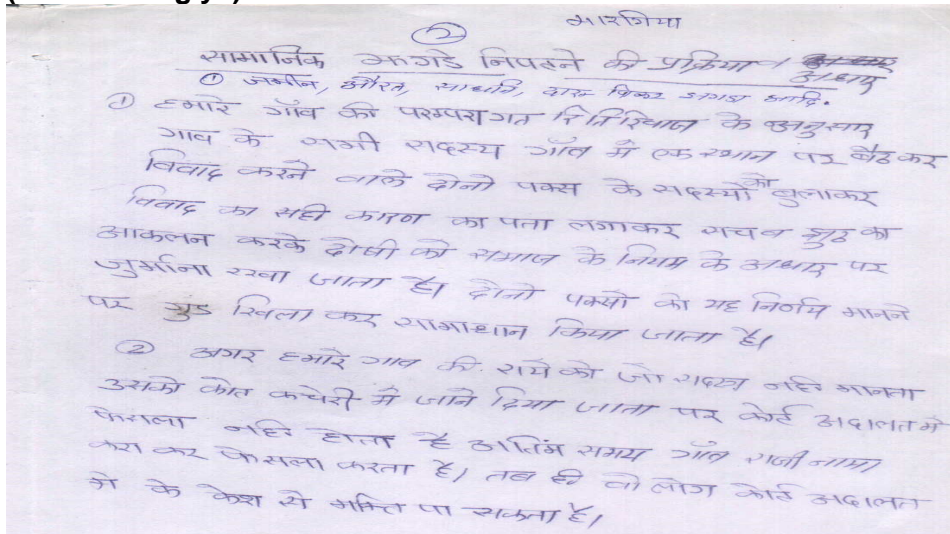 ② भारगिया
सामाजिक झगडे निपटने की प्रक्रिया । अधार
① जमीन, औरत, सम्पति, दारू पिकर झगडा आदि.
① हमारे गाँव की परम्परागत रितिरिवाज के अनुसार
गाव के सभी सदस्य गाँव में एक स्थान पर बैठ कर
विवाद करने वाले दोनो पक्स के सदस्यों को बुलाकर
विवाद का सही कारण का पता लगाकर सच व झुठ का
आकलन करके दोषी को समाज के नियम के अधार पर
जुर्माना रखा जाता है। दोनो पक्सों को यह निर्णय मानने
पर गुड खिला कर सामाधान किया जाता है।
② अगर हमारे गाव की राये को जो सदस्य नही मानता
उसको कोत कचेरी में जाने दिया जाता पर कोर्ट अदालत मे
फसला नहि होता है अतिंम समय गाँव राजीनामा
करा कर फेसला करता है। तब ही वो लोग कोर्ट अदालत
मे के केश से मक्ति पा सकता है।